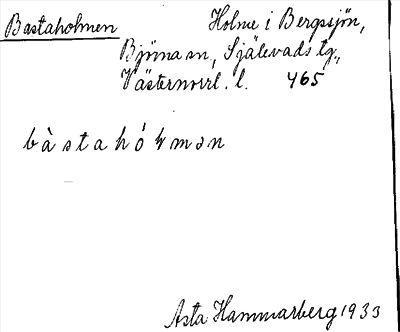 Bastaholmen Holme i Bergsjön,
Björna sn, Själevads tg.,
Västernorrl. l. 465
bàstahó4mən
Asta Hammarberg 1933